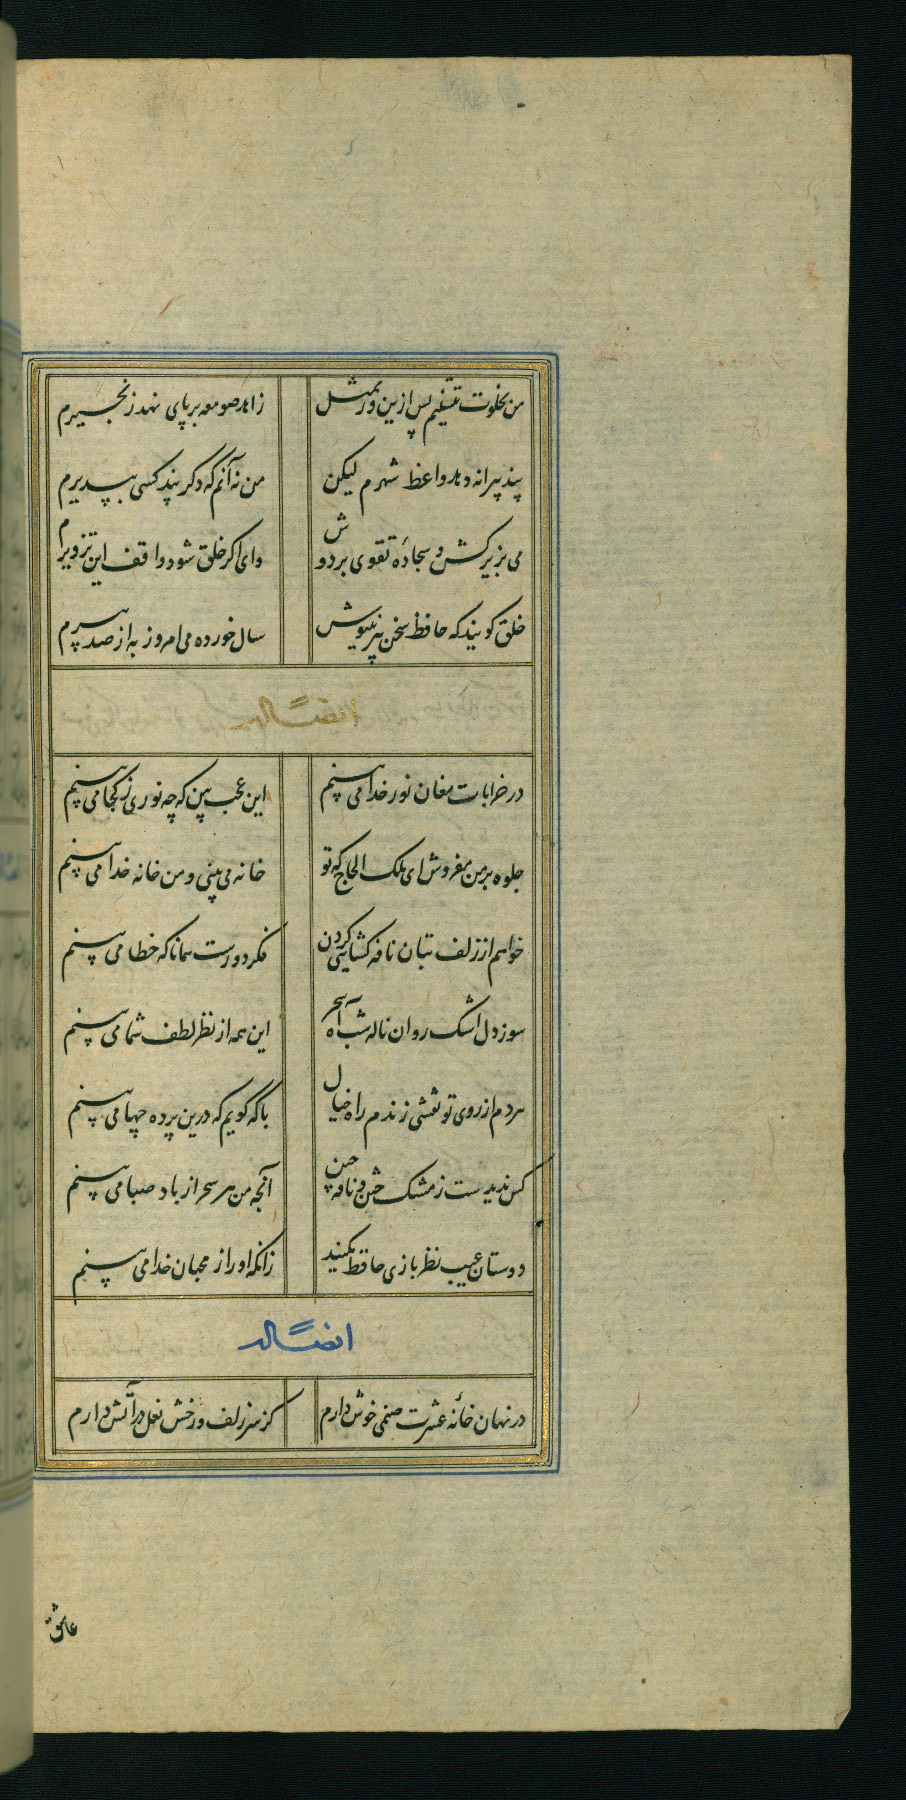 من بخلوت ننشینم پس ازین ور بمثل زاهد صومعه بر پای نهد زنجیرم
پند پیرانه دهد واعظ شهرم لیکن من نه آنم که دگر پند کسی بپذیرم
می بزیر کش و سجادهٔ تقوی بر دوش وای اکر خلق شود واقف این تزویرم
خلق کویند که حافظ سخن پیر نیوش سال خورده می امروز به از صد پیرم
ایضاً له
در خرابات مغان نور خدا می بینم این عجب بین که چه نوری ز کجا می بینم
جلوه بر من مفروش ای ملک الحاج که تو خانه می بینی و من خانه خدا می بینم
خواهم از زلف بتان نافه کشایی کردن فکر دورست همانا که خطا می بینم
سوز دل اشک روان ناله شب آه سحر این همه از نظر لطف شما می بینم
هر دم از روی تو نقشی زندم راه خیال با که کویم که درین پرده چها می بینم
کس ندیدست ز مشک ختن و نافه چین آنچه من هر سحر از باد صبا می بینم
دوستان عیب نظر بازی حافظ مکنید زانکه او را ز محبان خدا می بینم
ایضاً له
در نهان خانهٔ عشرت صنمی خوش دارم کز سر زلف و رخش نعل در آتش دارم
عاشق